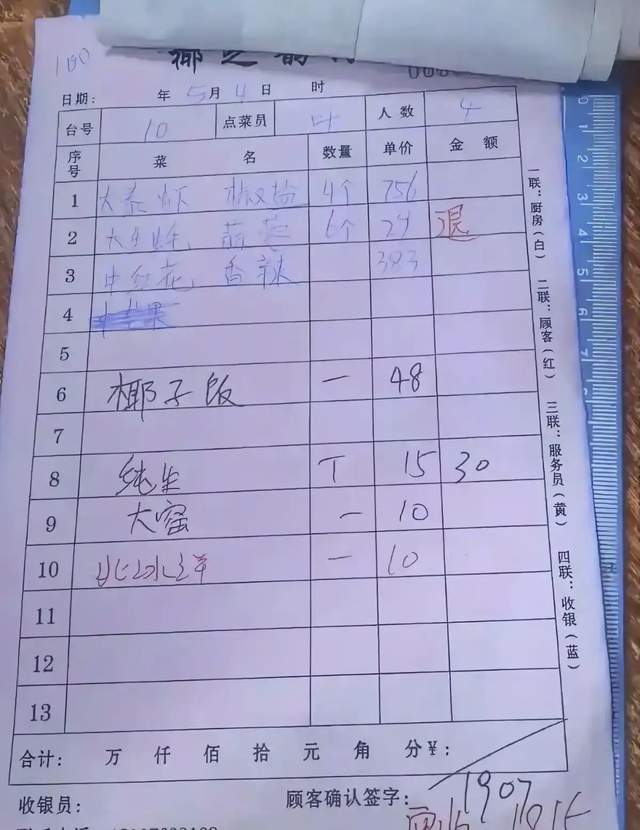 100
椰之韵
日期: 年 5 月 4 日 时
台号 10 点菜员 叶 人数 4
序号 菜名 数量 单价 金额
1 大泰虾 椒盐 4个 756
2 大生蚝, 蒜蓉 6个 24 退
3 中红花, 香辣 383
4
5
6 椰子饭 一 48
7
8 纯生 T 15 30
9 大窑 一 10
10 一 10
11
12
13
合计: 万 仟 佰 拾 元 角 分 ¥:
收银员: 顾客确认签字:
1907
一联:厨房(白) 二联:顾客(红) 三联:服务员(黄) 四联:收银(蓝)